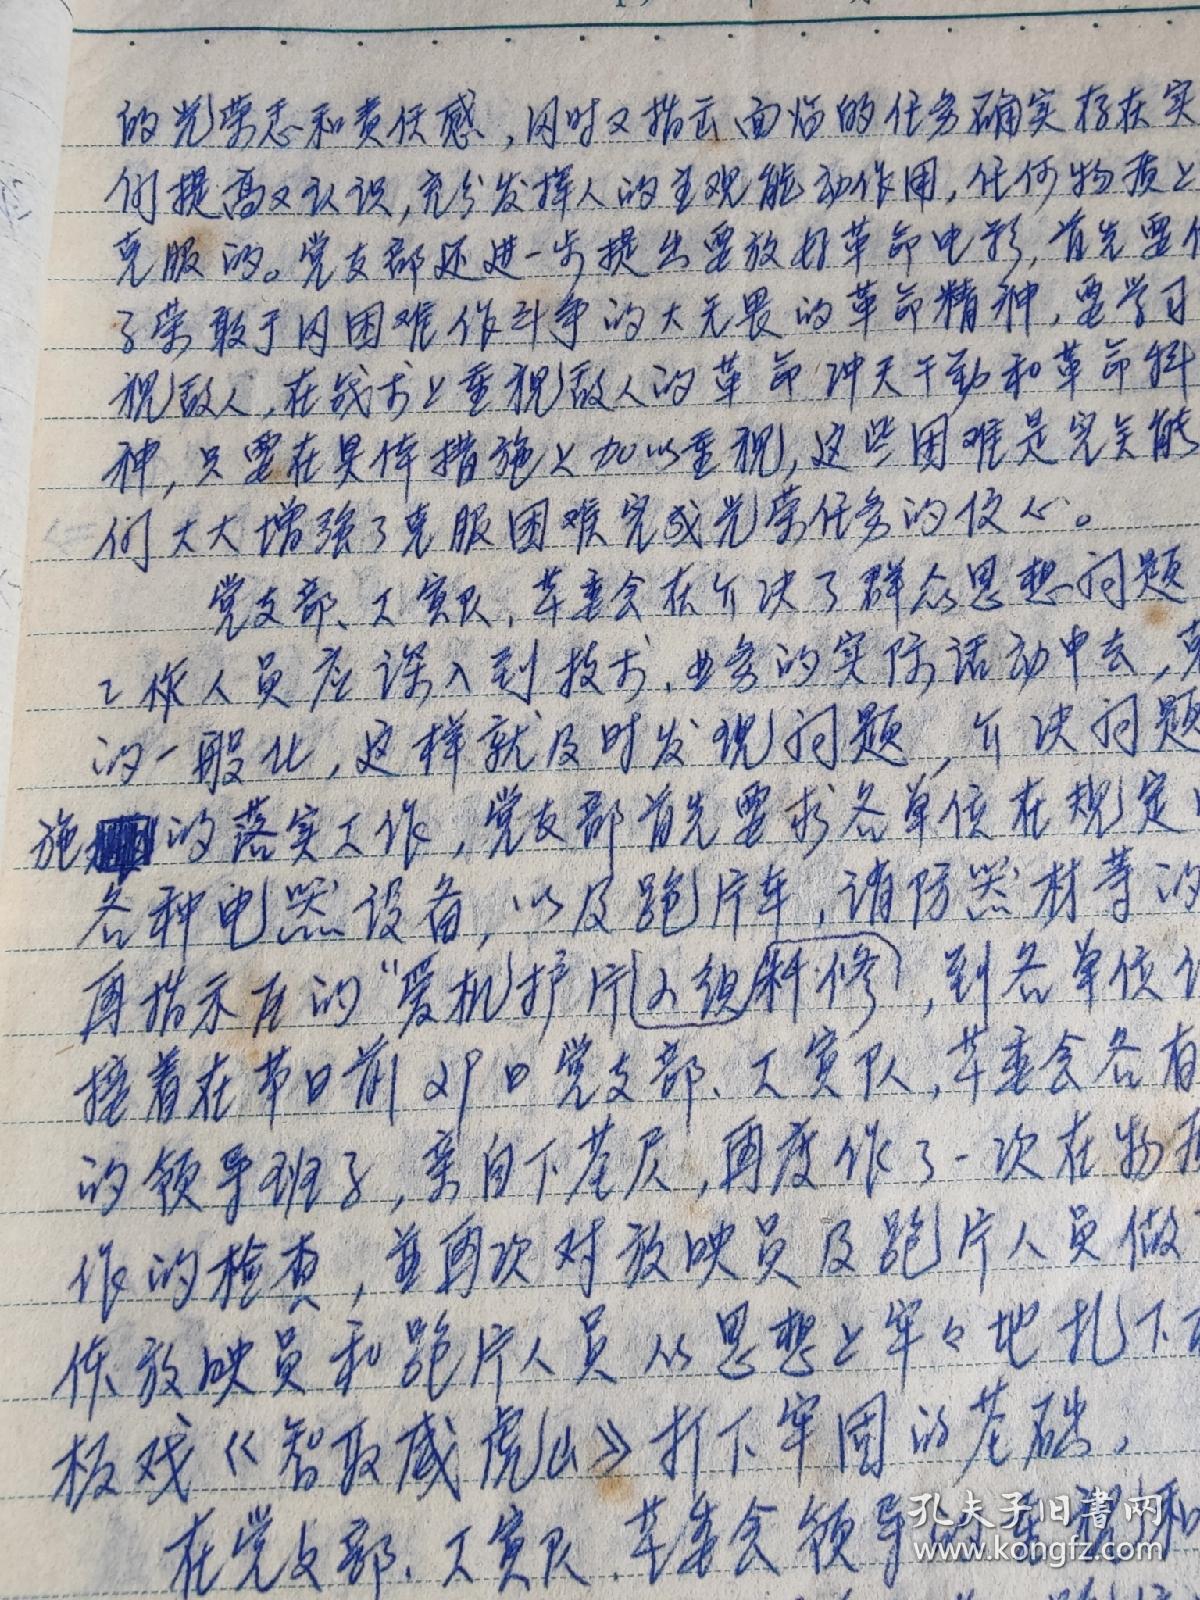 的光荣感和责任感，同时又指出面临的任务确实存在实
们提高又认识，充分发挥人的主观能动作用，任何物质上
克服的。党支部还进一步提出要放好革命电影，首先要
了荣敢于同困难作斗争的大无畏的革命精神，要学习
视敌人，在战术上重视敌人的革命冲天干劲和革命科
神，只要在具体措施上加以重视，这些困难是完全能
们大大增强了克服困难完成光荣任务的信心。
党支部、工宣队，革委会在介决了群众思想问题
工作人员应深入到技术、业务的实际活动中去，
的一般化，这样就及时发现问题，介决问题
施的落实工作，党支部首先要求各单位在规定
各种电器设备，以及跑片车，消防器材等的
再指示在的“爱机护片小组料修，到各单位
接着在节日前夕中党支部、工宣队，革委会各有
的领导班子，亲自下基层，再度作了一次在物
作的检查，并再次对放映员及跑片人员做
使放映员和跑片人员从思想上牢々地扎下
板戏《智取威虎山》打下牢固的基础，
在党支部、工宣队、革委会领导的重视和
孔夫子旧书网
www.kongfz.com